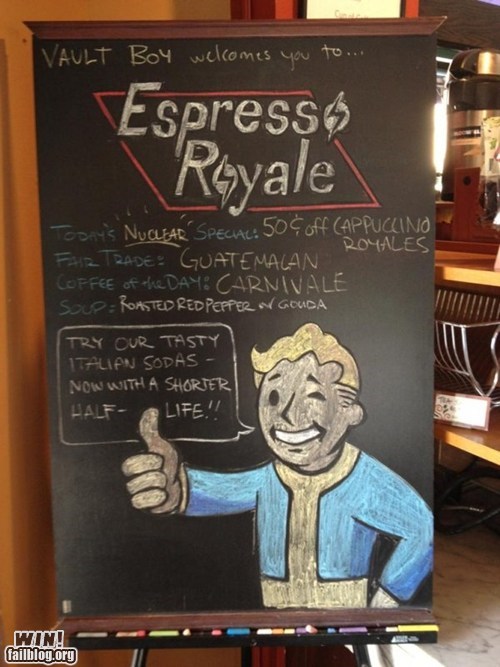 VAULT BOY welcomes you to...
Espresso
Royale
TODAY'S NUCLEAR SPECIAL: 50¢ off CAPPUCCINO
ROYALES
FAIR TRADE: GUATEMALAN
COFFEE of the DAY: CARNIVALE
SOUP: ROASTED RED PEPPER w GOUDA
TRY OUR TASTY
ITALIAN SODAS -
NOW WITH A SHORTER
HALF- LIFE!!
WIN!
failblog.org